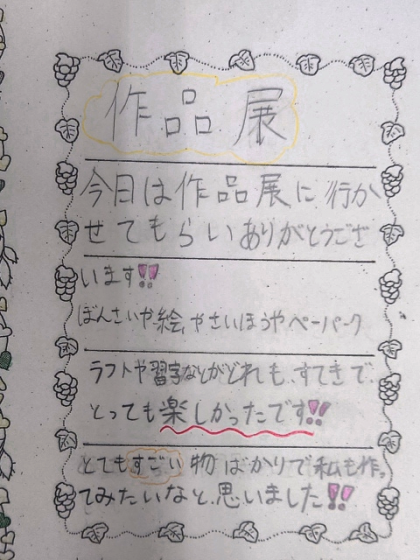 作品展
今日は作品展に行か
せてもらいありがとうござ
います!!
ぼんさいや絵、やさいほうやペーパーク
ラフトや習字などがどれも、すてきで、
とっても楽しかったです!!
とてもすごい物ばかりで私も作っ
てみたいなと、思いました!!